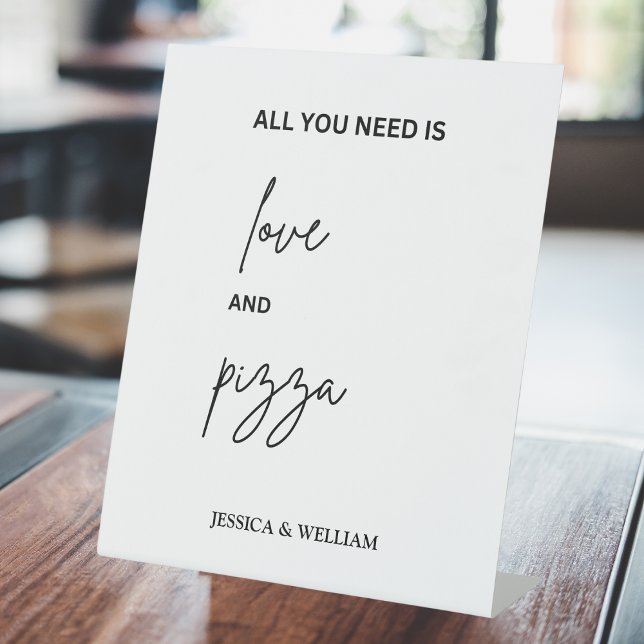 ALL YOU NEED IS
love
AND
pizza
JESSICA & WELLIAM